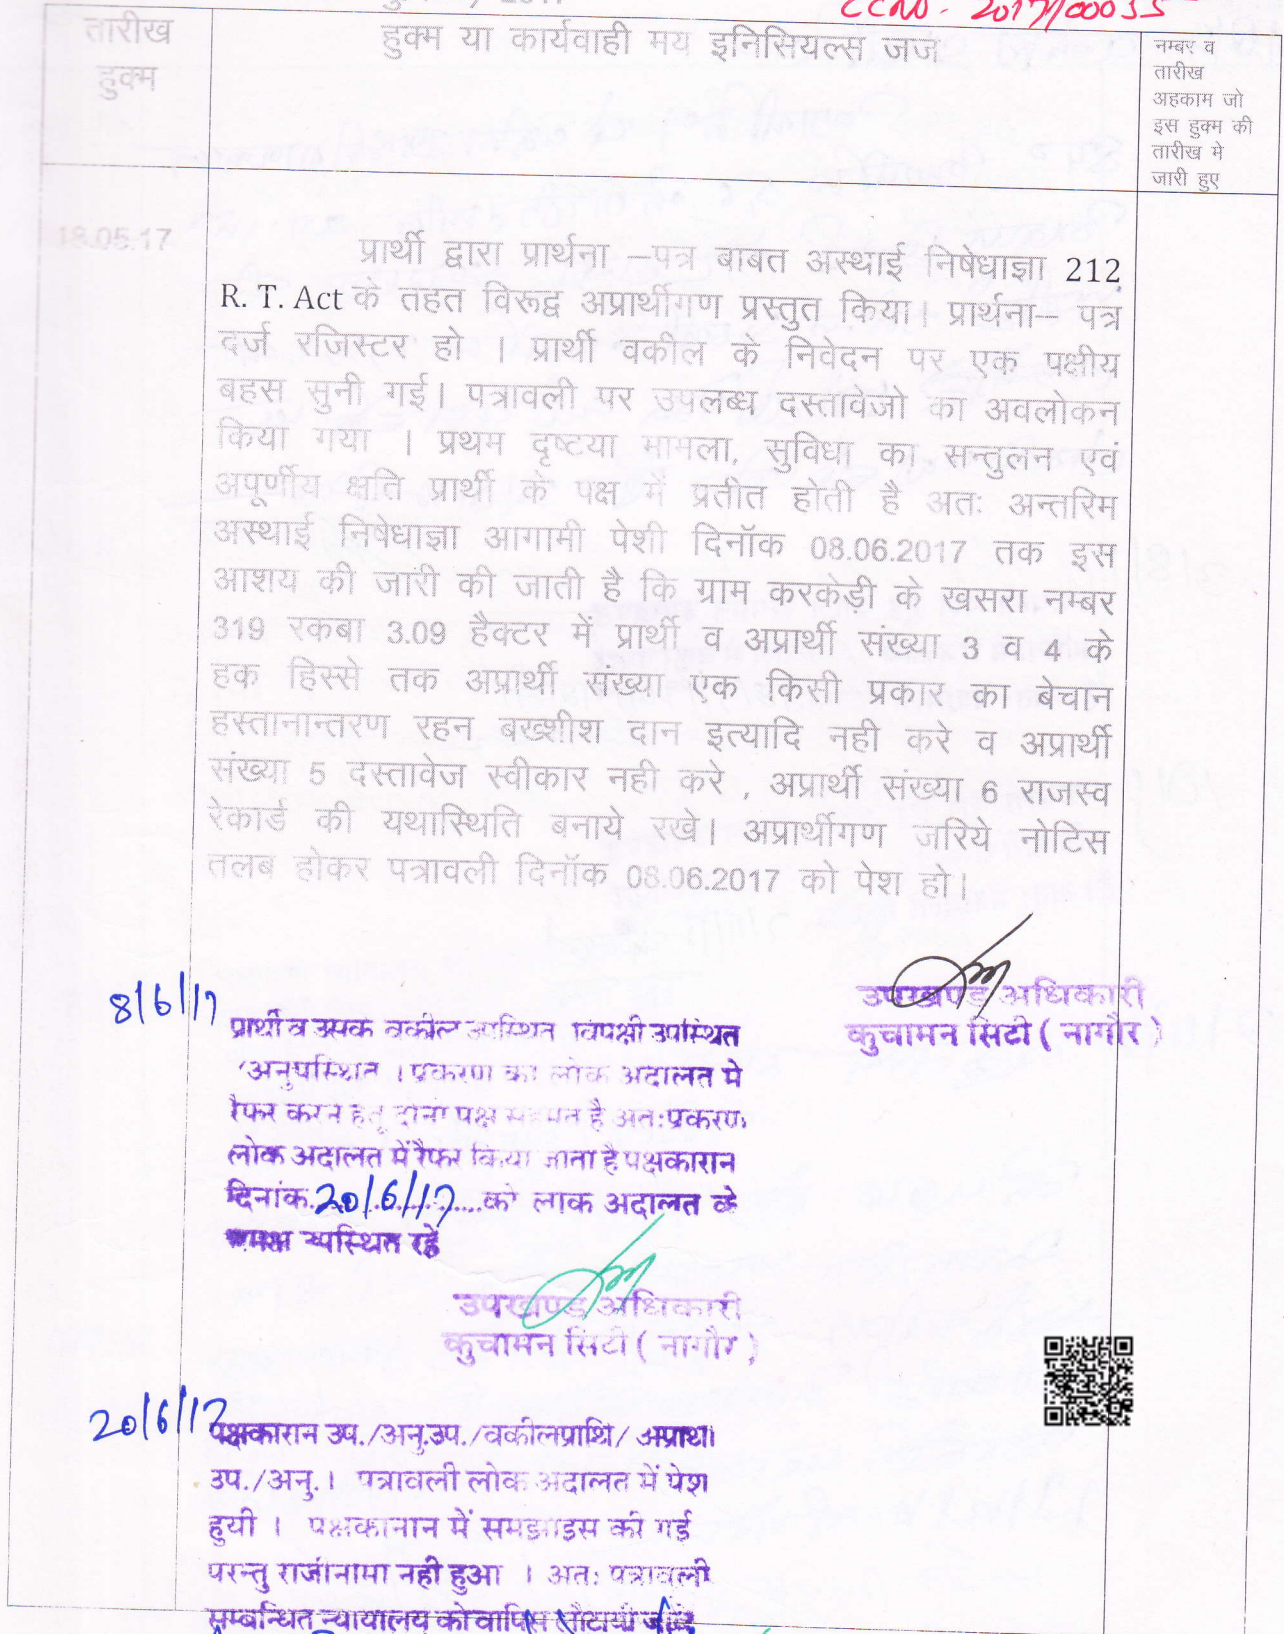 CCNO. 2017/00035
तारीख
हुक्म
हुक्म या कार्यवाही मय इनिसियल्स जज
नम्बर व
तारीख
अहकाम जो
इस हुक्म की
तारीख मे
जारी हुए
18.05.17
प्रार्थी द्वारा प्रार्थना –पत्र बाबत अस्थाई निषेधाज्ञा 212
R. T. Act के तहत विरूद्व अप्रार्थीगण प्रस्तुत किया। प्रार्थना– पत्र
दर्ज रजिस्टर हो । प्रार्थी वकील के निवेदन पर एक पक्षीय
बहस सुनी गई। पत्रावली पर उपलब्ध दस्तावेजो का अवलोकन
किया गया । प्रथम दृष्टया मामला, सुविधा का सन्तुलन एवं
अपूर्णीय क्षति प्रार्थी के पक्ष में प्रतीत होती है अतः अन्तरिम
अस्थाई निषेधाज्ञा आगामी पेशी दिनॉक 08.06.2017 तक इस
आशय की जारी की जाती है कि ग्राम करकेड़ी के खसरा नम्बर
319 रकबा 3.09 हैक्टर में प्रार्थी व अप्रार्थी संख्या 3 व 4 के
हक हिस्से तक अप्रार्थी संख्या एक किसी प्रकार का बेचान
हस्तानान्तरण रहन बख्शीश दान इत्यादि नही करे व अप्रार्थी
संख्या 5 दस्तावेज स्वीकार नही करे , अप्रार्थी संख्या 6 राजस्व
रेकार्ड की यथास्थिति बनाये रखे। अप्रार्थीगण जरिये नोटिस
तलब होकर पत्रावली दिनॉक 08.06.2017 को पेश हो।
उपखण्ड अधिकारी
कुचामन सिटी ( नागौर )
8/6/17
प्रार्थी व उसक वकील उपस्थित विपक्षी उपस्थित
अनुपस्थित । प्रकरण का लोक अदालत मे
रैफर करन हेतू दोनो पक्ष सहमत है अतःप्रकरण
लोक अदालत में रैफर किया जाता है पक्षकारान
दिनांक. 20/6/17 को लोक अदालत के
समक्ष उपस्थित रहे
उपखण्ड अधिकारी
कुचामन सिटी ( नागौर )
20/6/17
पक्षकारान उप./अनु.उप./वकीलप्रार्थि/ अप्रार्थी
उप./अनु.। पत्रावली लोक अदालत में पेश
हुयी । पक्षकानान में समझाइस की गई
परन्तु राजीनामा नही हुआ । अतः पत्रावली
सम्बन्धित न्यायालय को वापिस लौटायी जावे